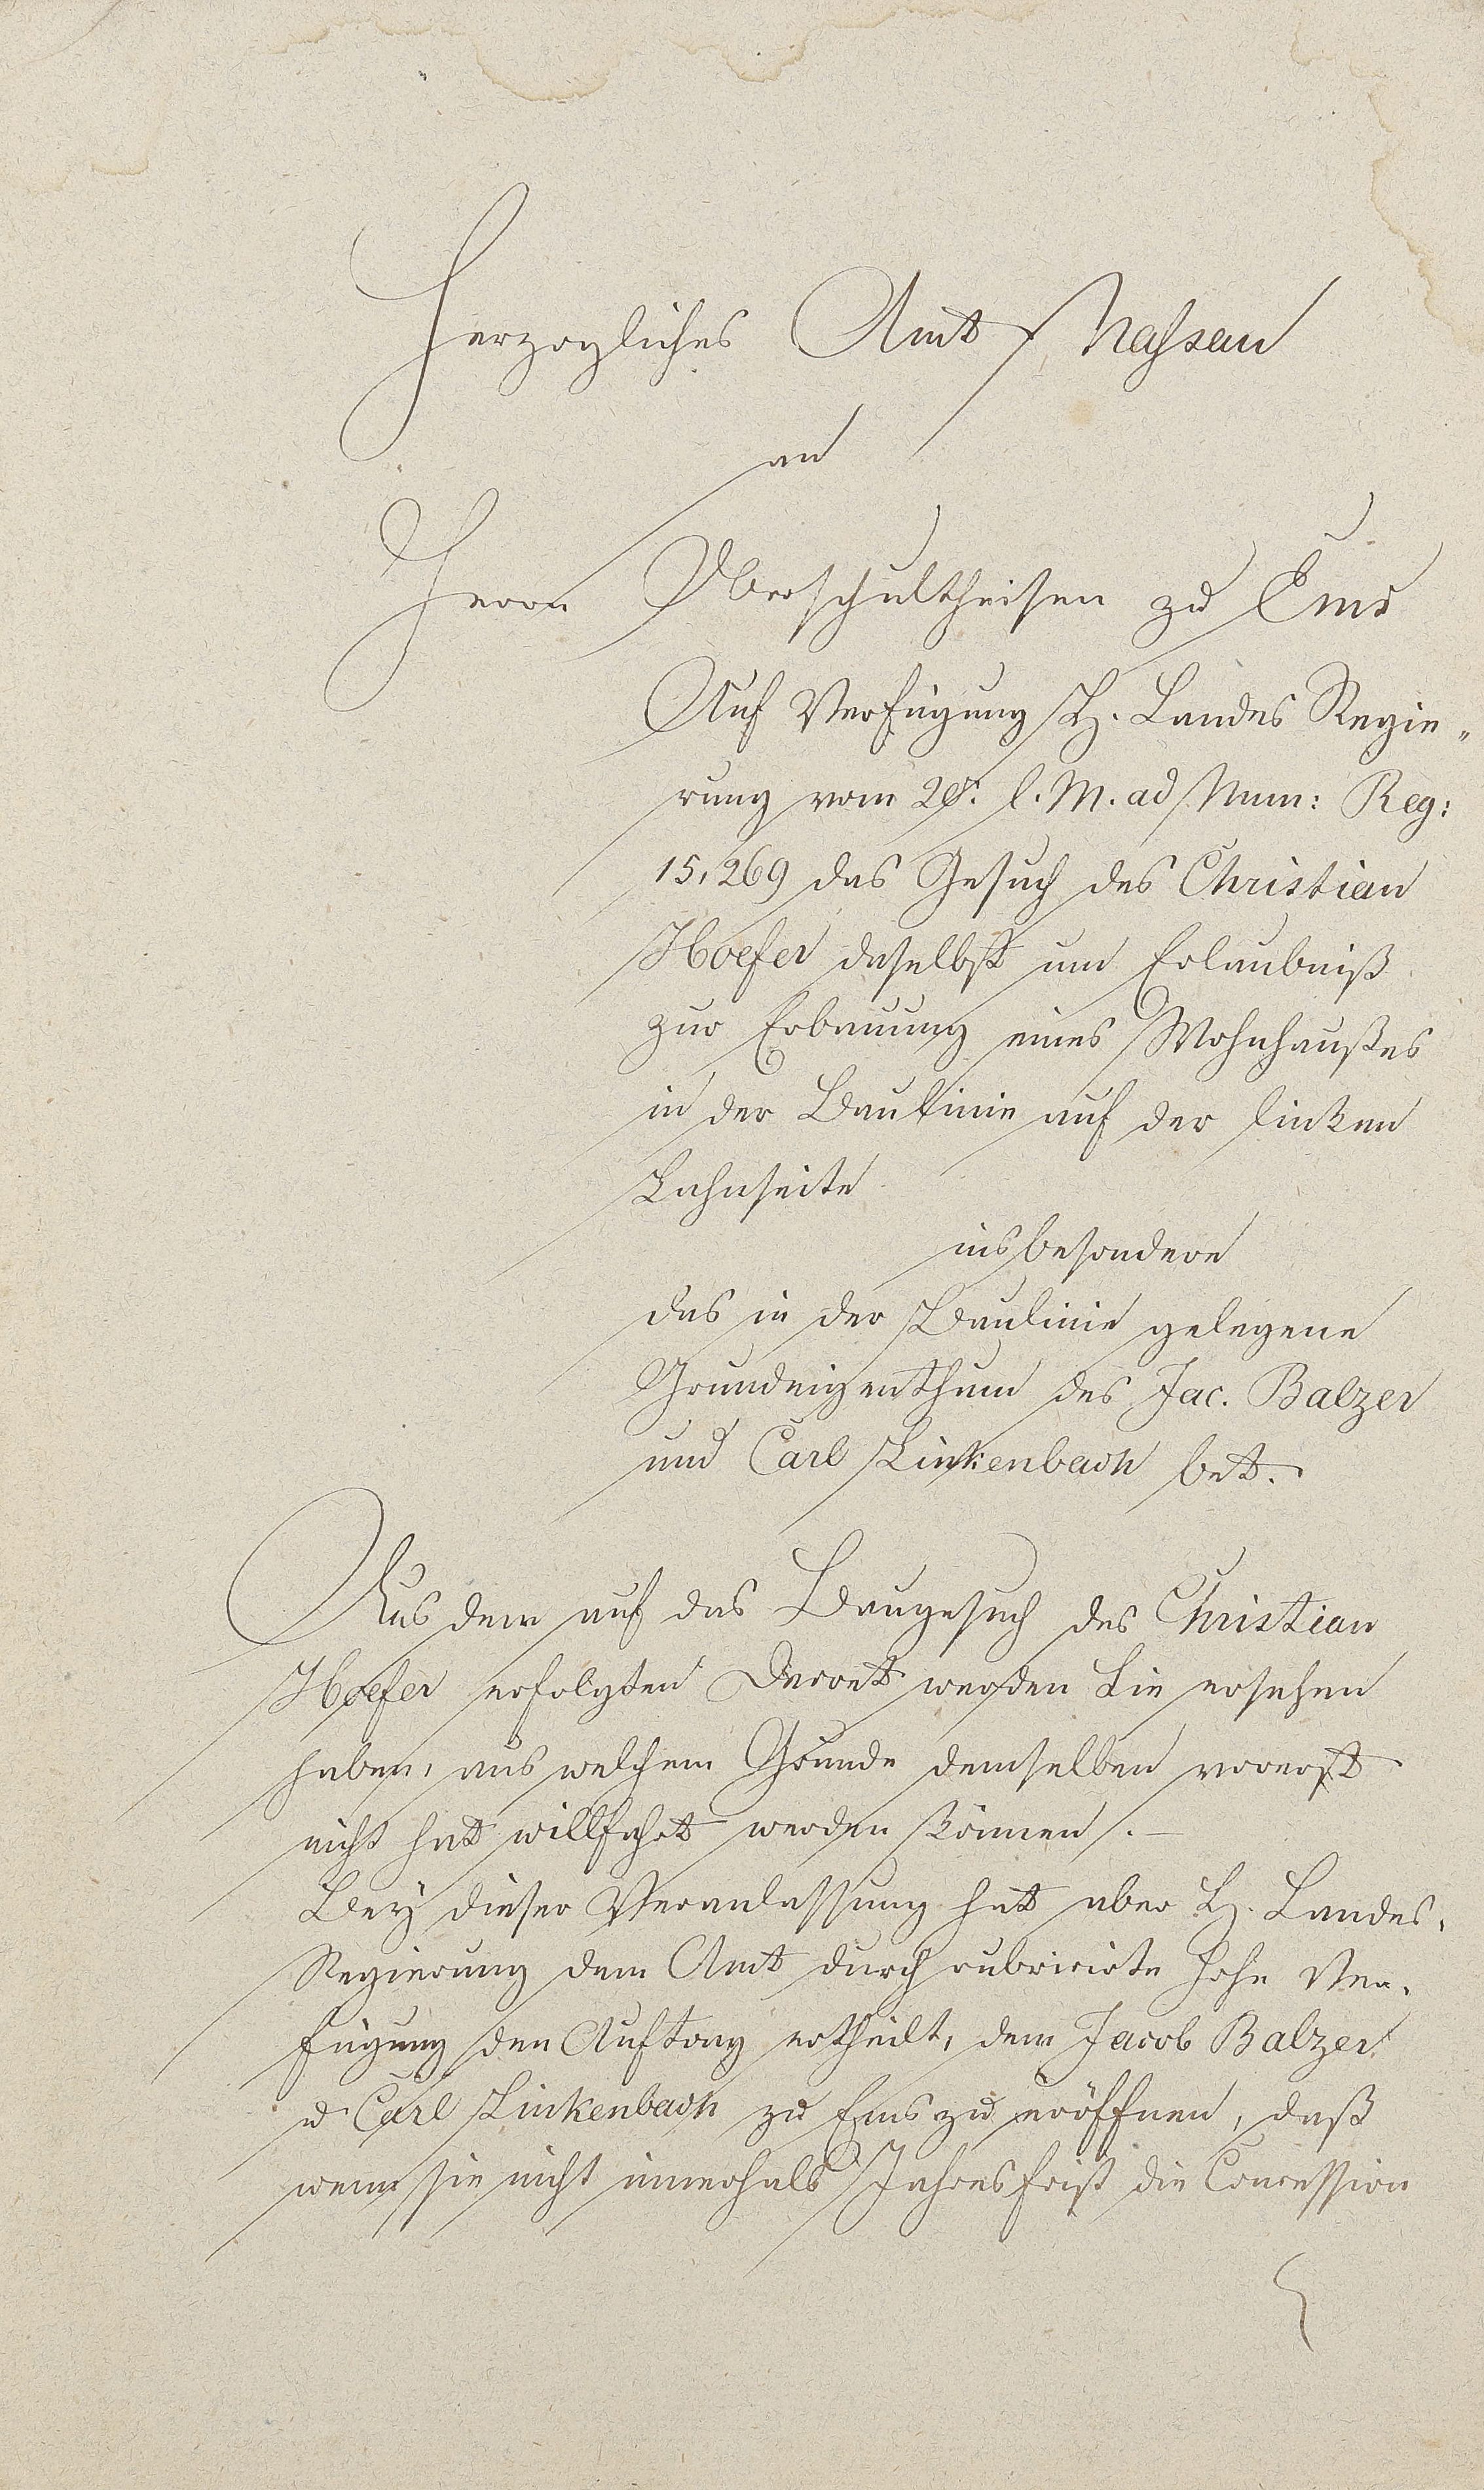 Herzogliches Amt Nassau
an
Herrn Oberschultheisen zu Ems
Auf Verfügung H. Landes Regie„
rung vom 28. l. M. ad Num: Reg:
15,269 das Gesuch des Christian
Hoefer daselbst um Erlaubniß
zur Erbauung eines Wohnhaußes
in der Baulinie auf der linken
Lahnseite
insbesondere
das in der Baulinie gelegene
Grundeigenthum des Jac. Balzer
und Carl Linkenbach bet.
Aus dem auf das Baugesuch des Christian
Hoefer erfolgten Decret werden Sie ersehen
haben, aus welchem Grunde demselben vorerst
nicht hat willfahrt werden können. —
Bey dieser Veranlassung hat aber H. Landes-
Regierung dem Amt durch rubricirte hohe Ver-
fügung den Auftrag ertheilt, dem Jacob Balzer
u Carl Linkenbach zu Ems zu eröffnen, daß
wenn sie nicht innerhalb Jahresfrist die Concession